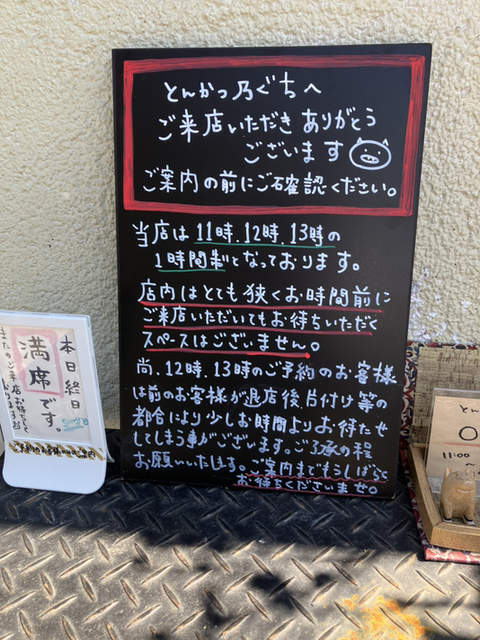 とんかつ乃ぐちへ
ご来店いただき ありがとう
ございます
ご案内の前にご確認ください。
当店は11時、12時、13時の
1時間制となっております。
店内はとても狭くお時間前に
ご来店いただいてもお待ちいただく
スペースはございません。
尚、12時、13時のご予約のお客様
は前のお客様が退店後、片付け等の
都合により少しお時間よりお待たせ
してしまう事がございます。ご了承の程
お願いいたします。ご案内までもうしばらく
お待ちくださいませ。
本日終日
満席です。
またのご来店お待ちして
おります
とん
11:00
～